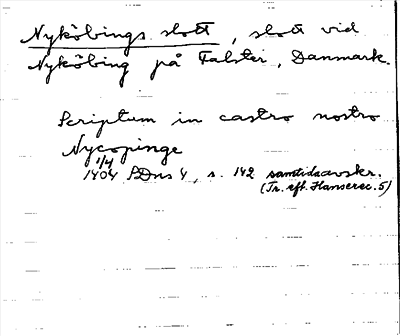 Nyköbings slott, slott vid
Nyköbing på Falster, Danmark.
Scriptum in castro nostro
Nycopinge
1/4
1404 SDns 4, s. 142 samtidaavskr.
(Tr. eft. Hanserec. 5)